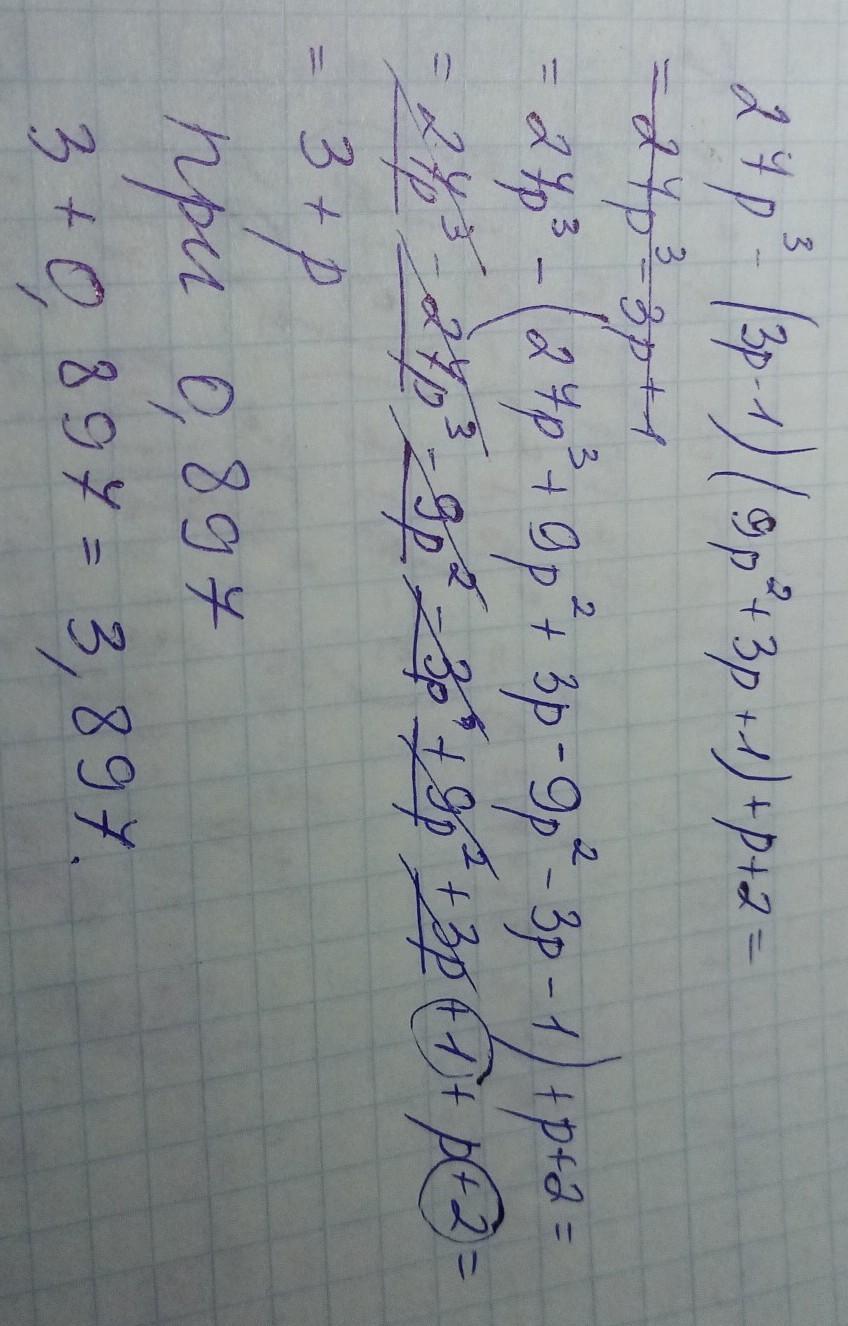 27p³ - (3p-1)(9p²+3p+1)+p+2=
=27p³-3p+1
=27p³-(27p³+9p²+3p-9p²-3p-1)+p+2=
=27p³-27p³-9p²-3p+9p²+3p+1+p+2=
=3+p
при 0,897
3+0,897=3,897.